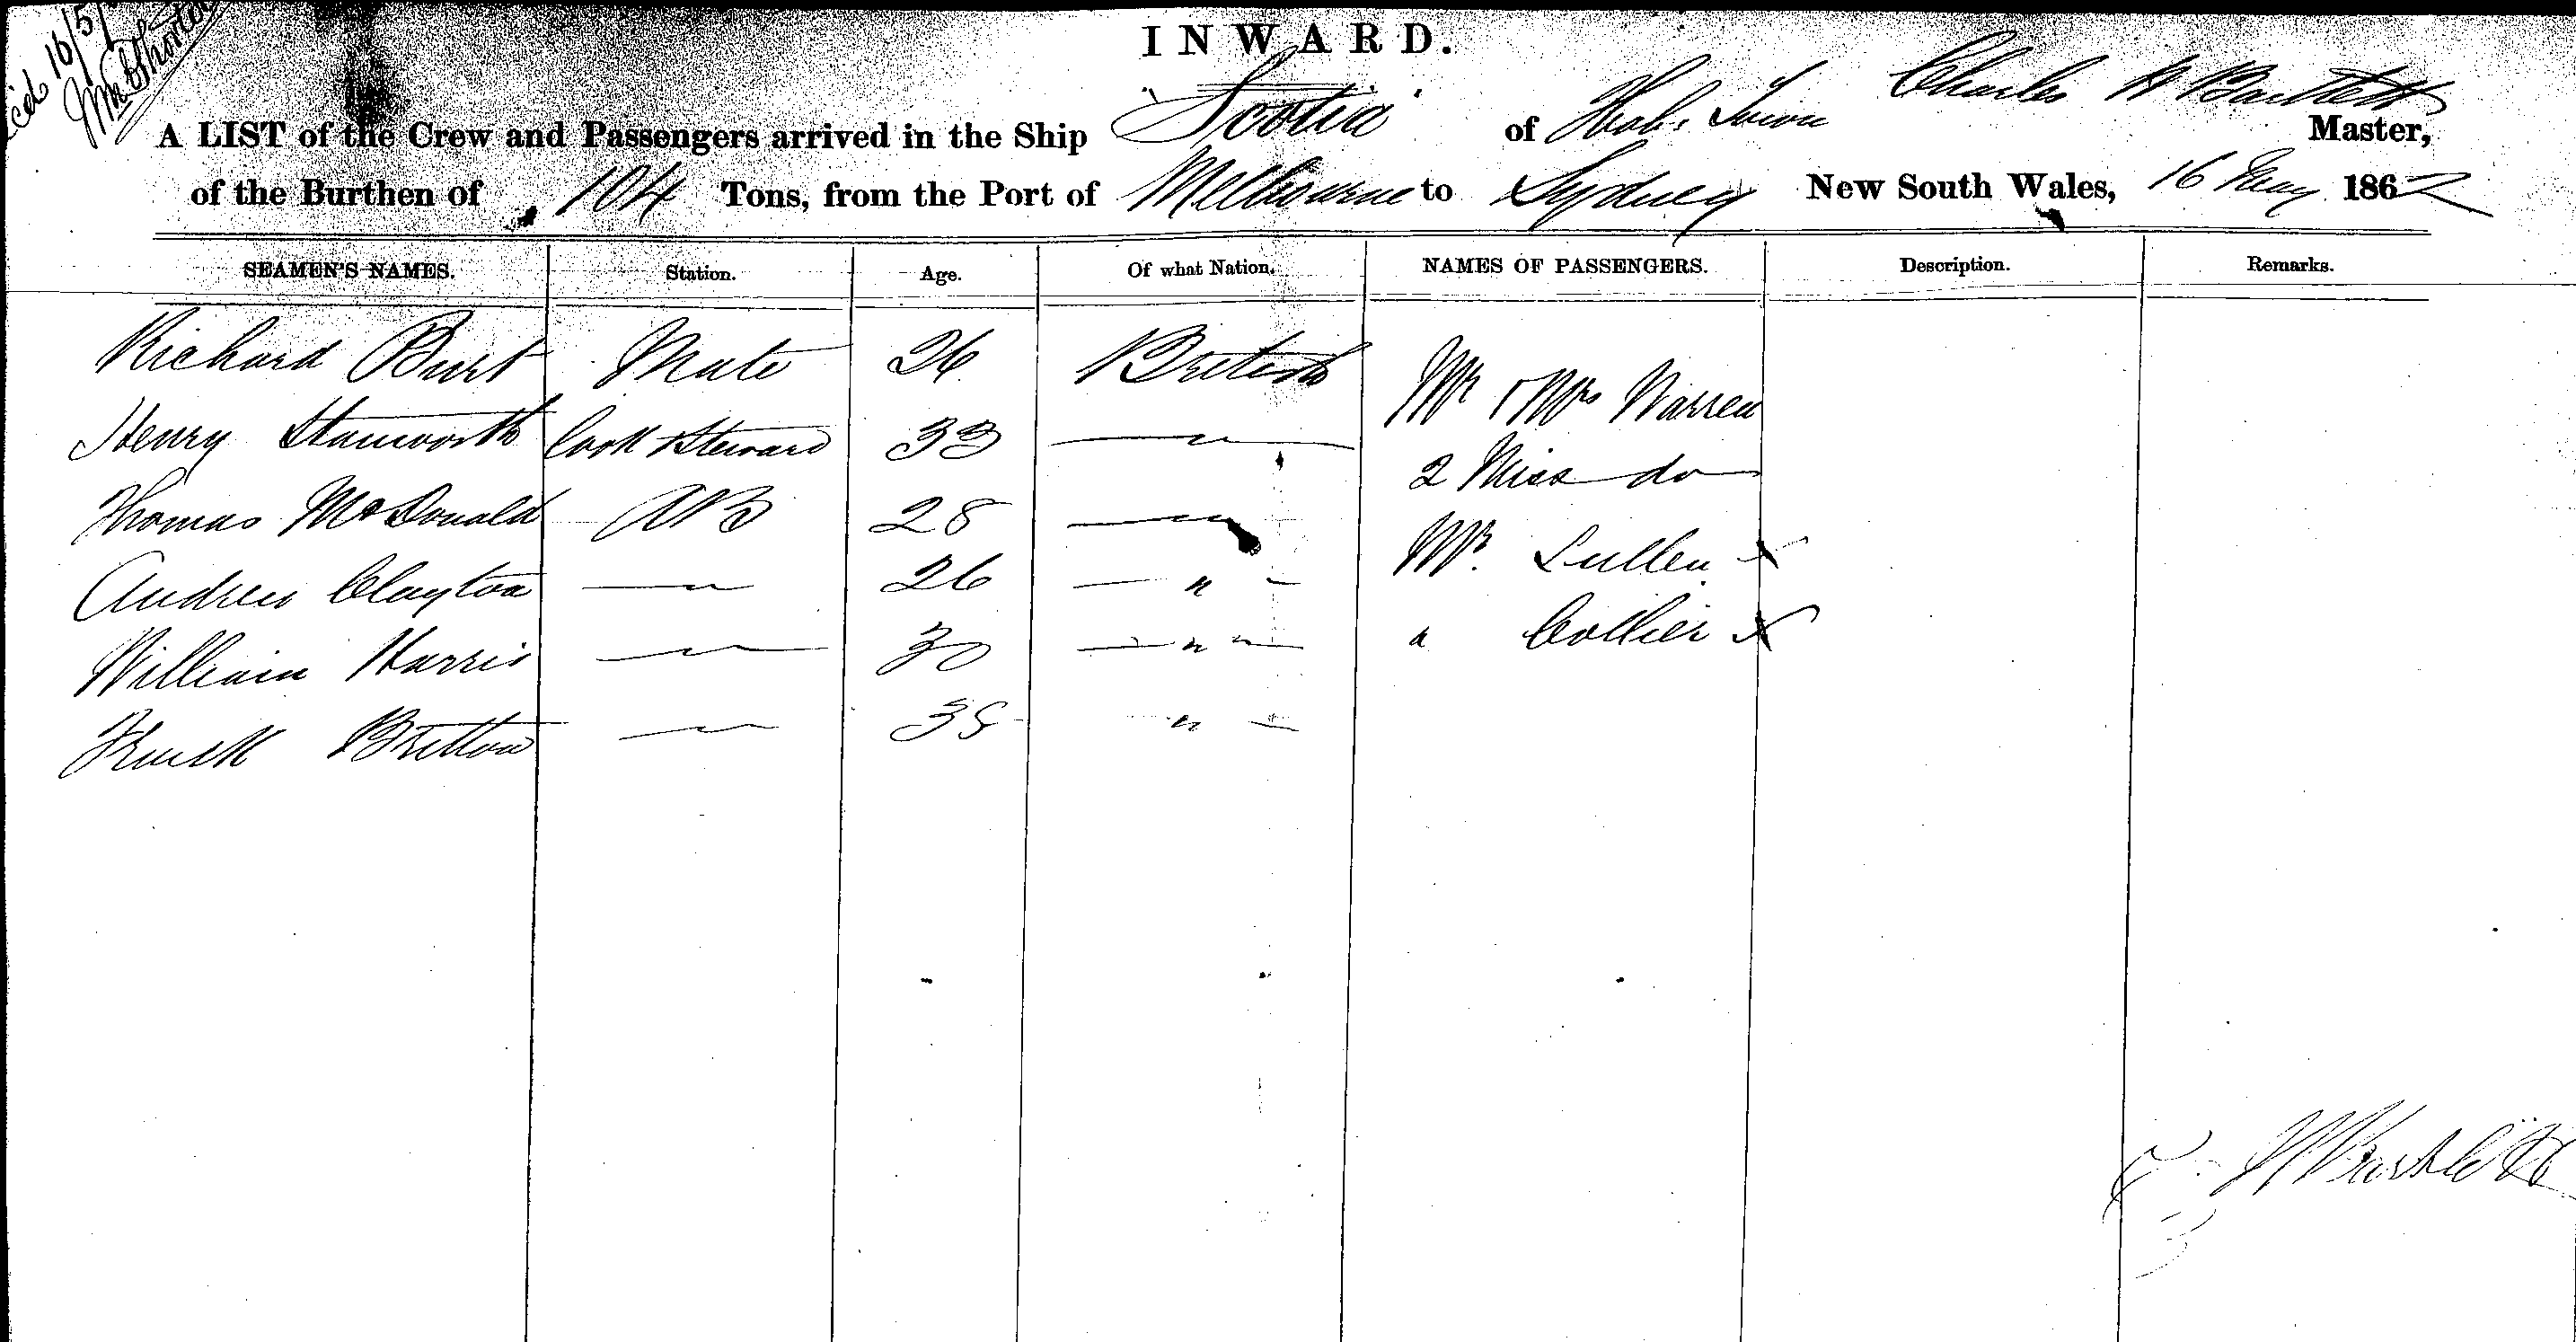 16/5/
INWARD.
A LIST of the Crew and Passengers arrived in the Ship "Scotia" of Hob. Town Charles H Bartlett Master,
of the Burthen of 104 Tons, from the Port of Melbourne to Sydney New South Wales, 16 May 1862
SEAMEN'S NAMES. Station. Age. Of what Nation. NAMES OF PASSENGERS. Description. Remarks.
Richard Burt Mate 26 British Mr & Mrs Warren
Henry Stanworth Cook & Steward 33 — " — 2 Miss do
Thomas McDonald AB 28 — " — Mr. Lullen x
Andrew Clayton — " — 26 — " — " Collier x
William Harris — " — 30 — " " —
Frank Britton — " — 38 " —
Bartlett